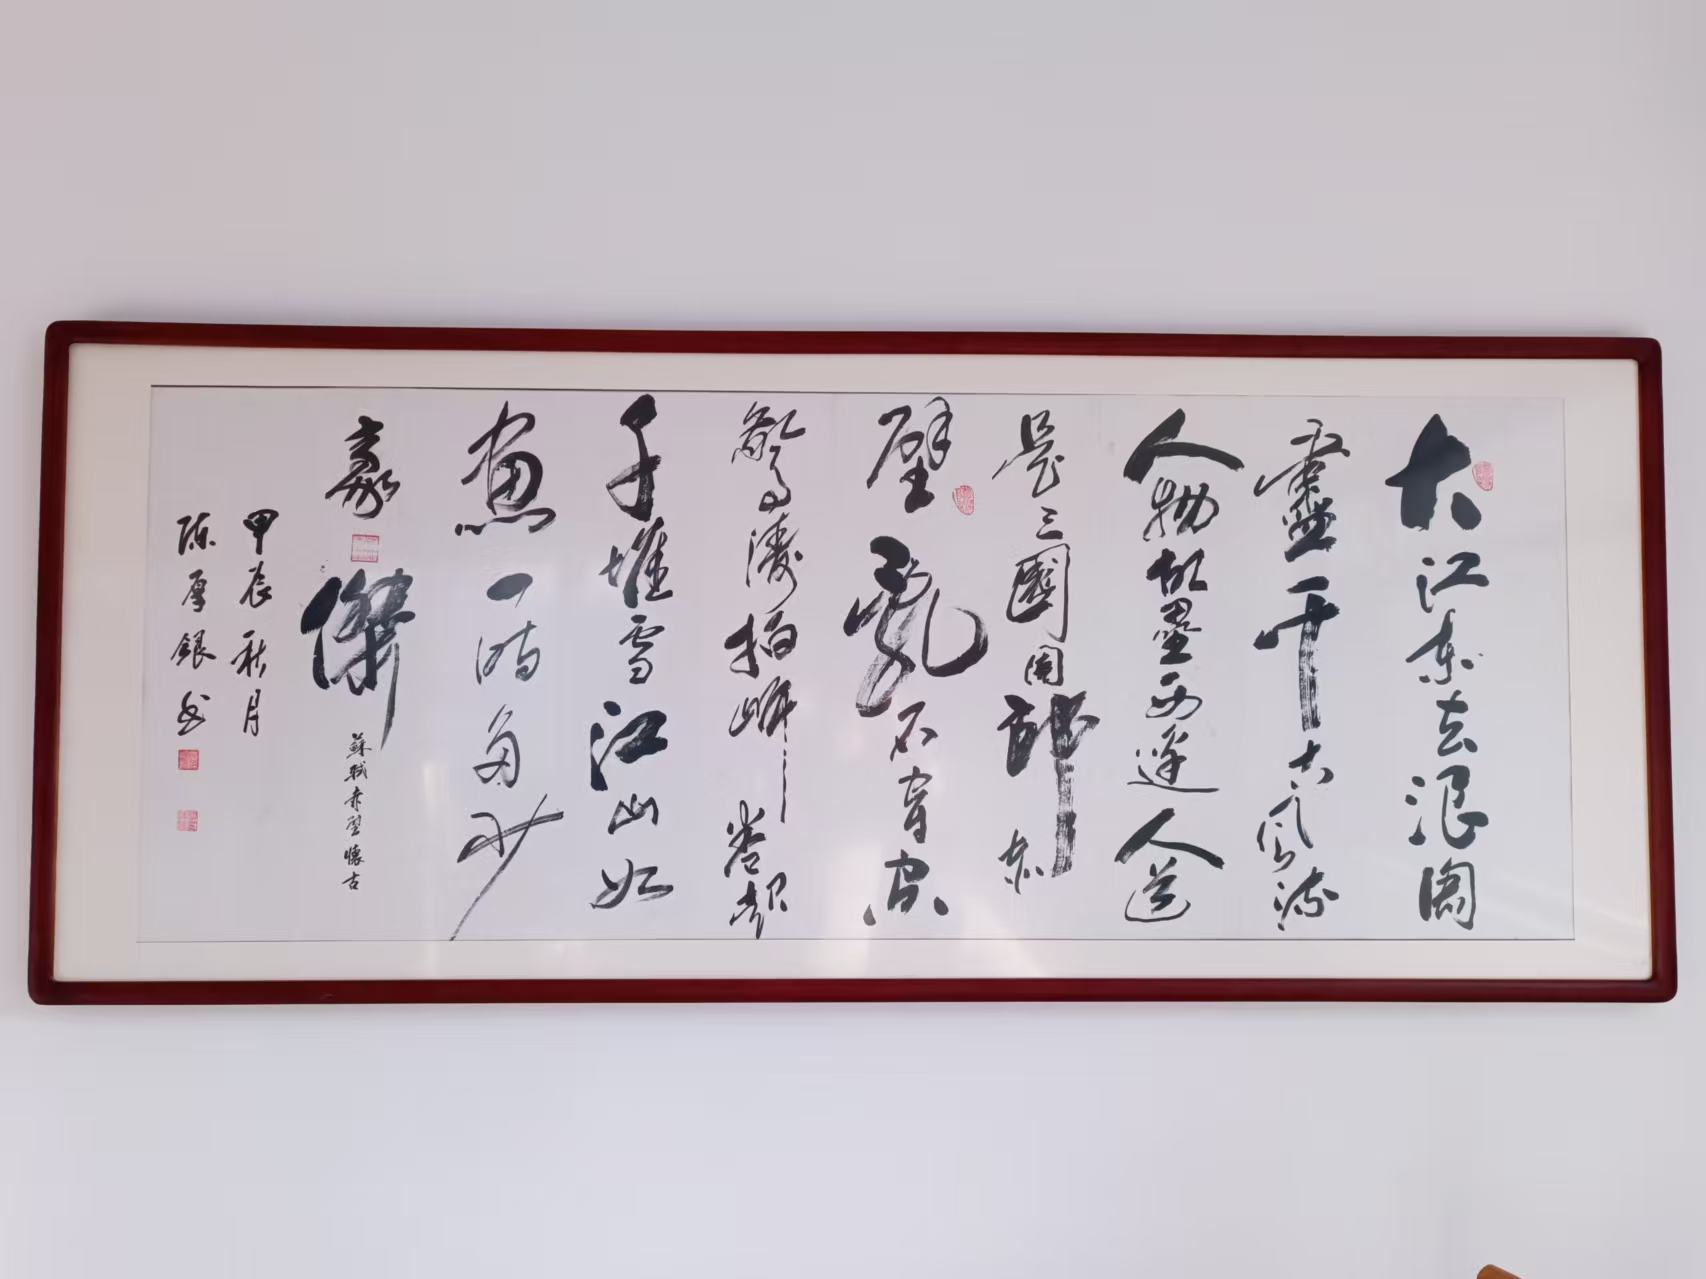 大江东去浪淘
盡千古风流
人物故壘西邊人道
是三國周郎赤
壁亂石穿空
驚濤拍岸卷起
千堆雪江山如
畫一時多少
豪傑
蘇軾赤壁懷古
甲辰秋月
陈厚銀书